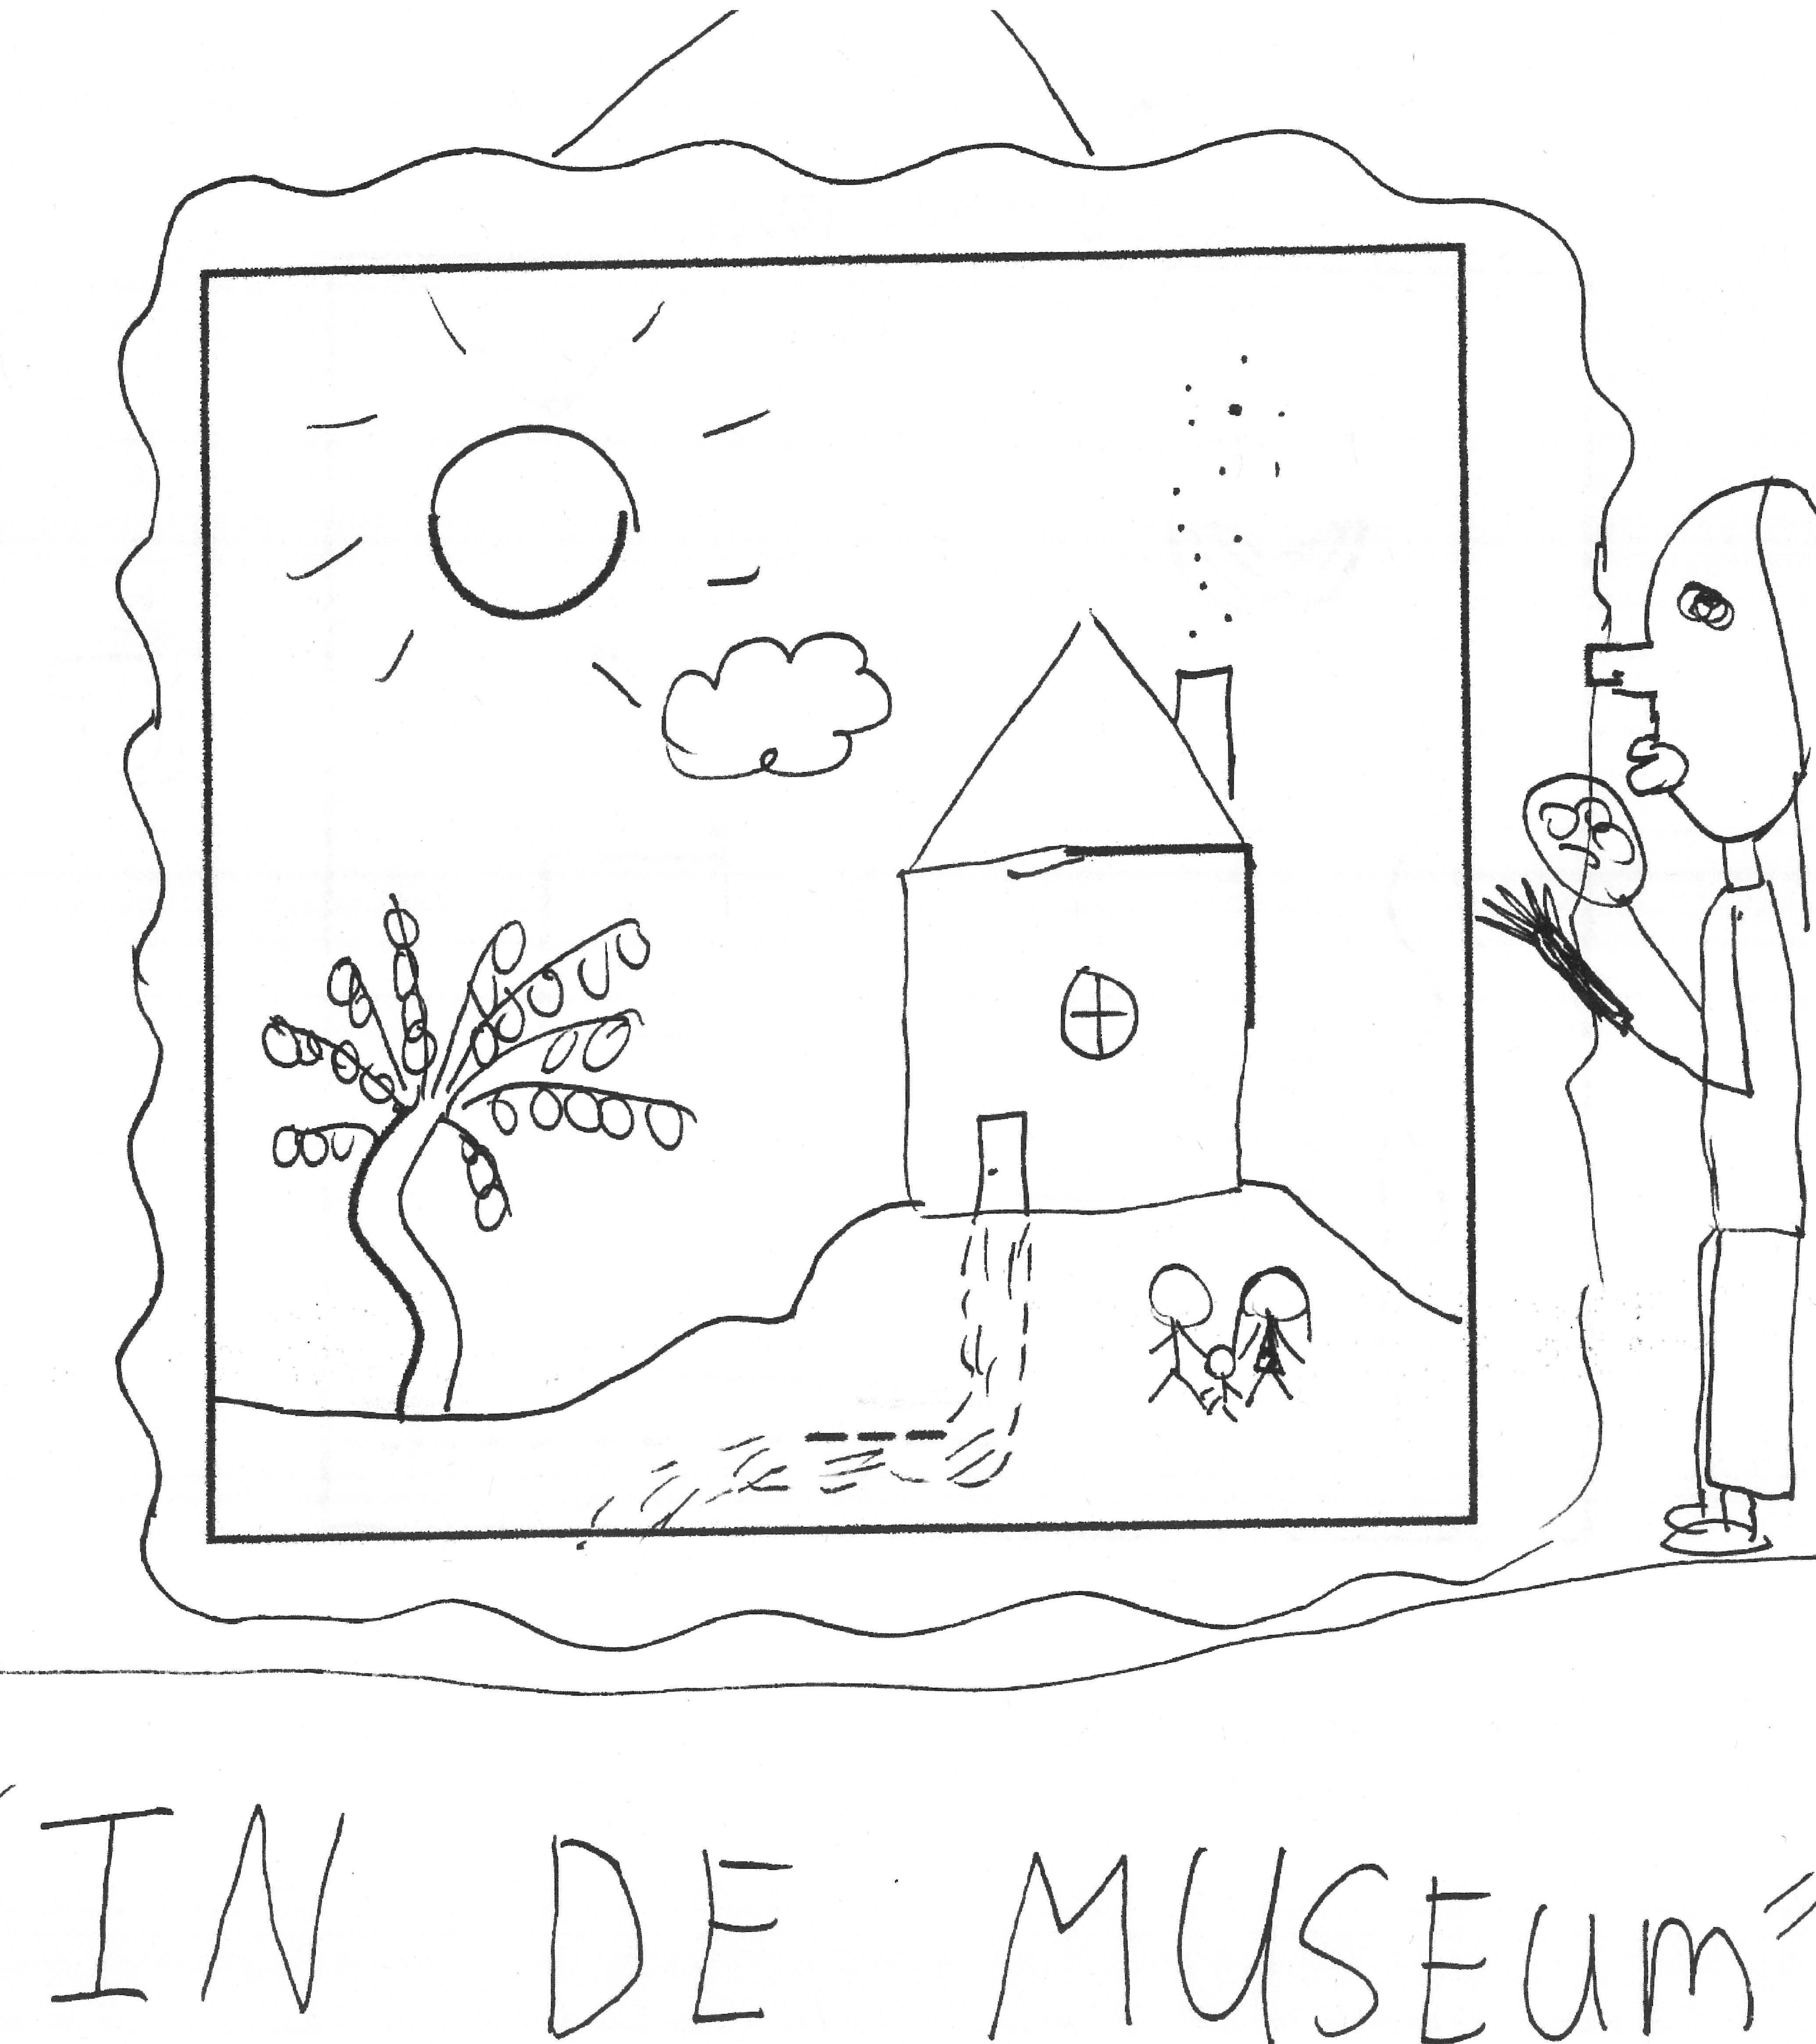 "IN DE MUSEUM"